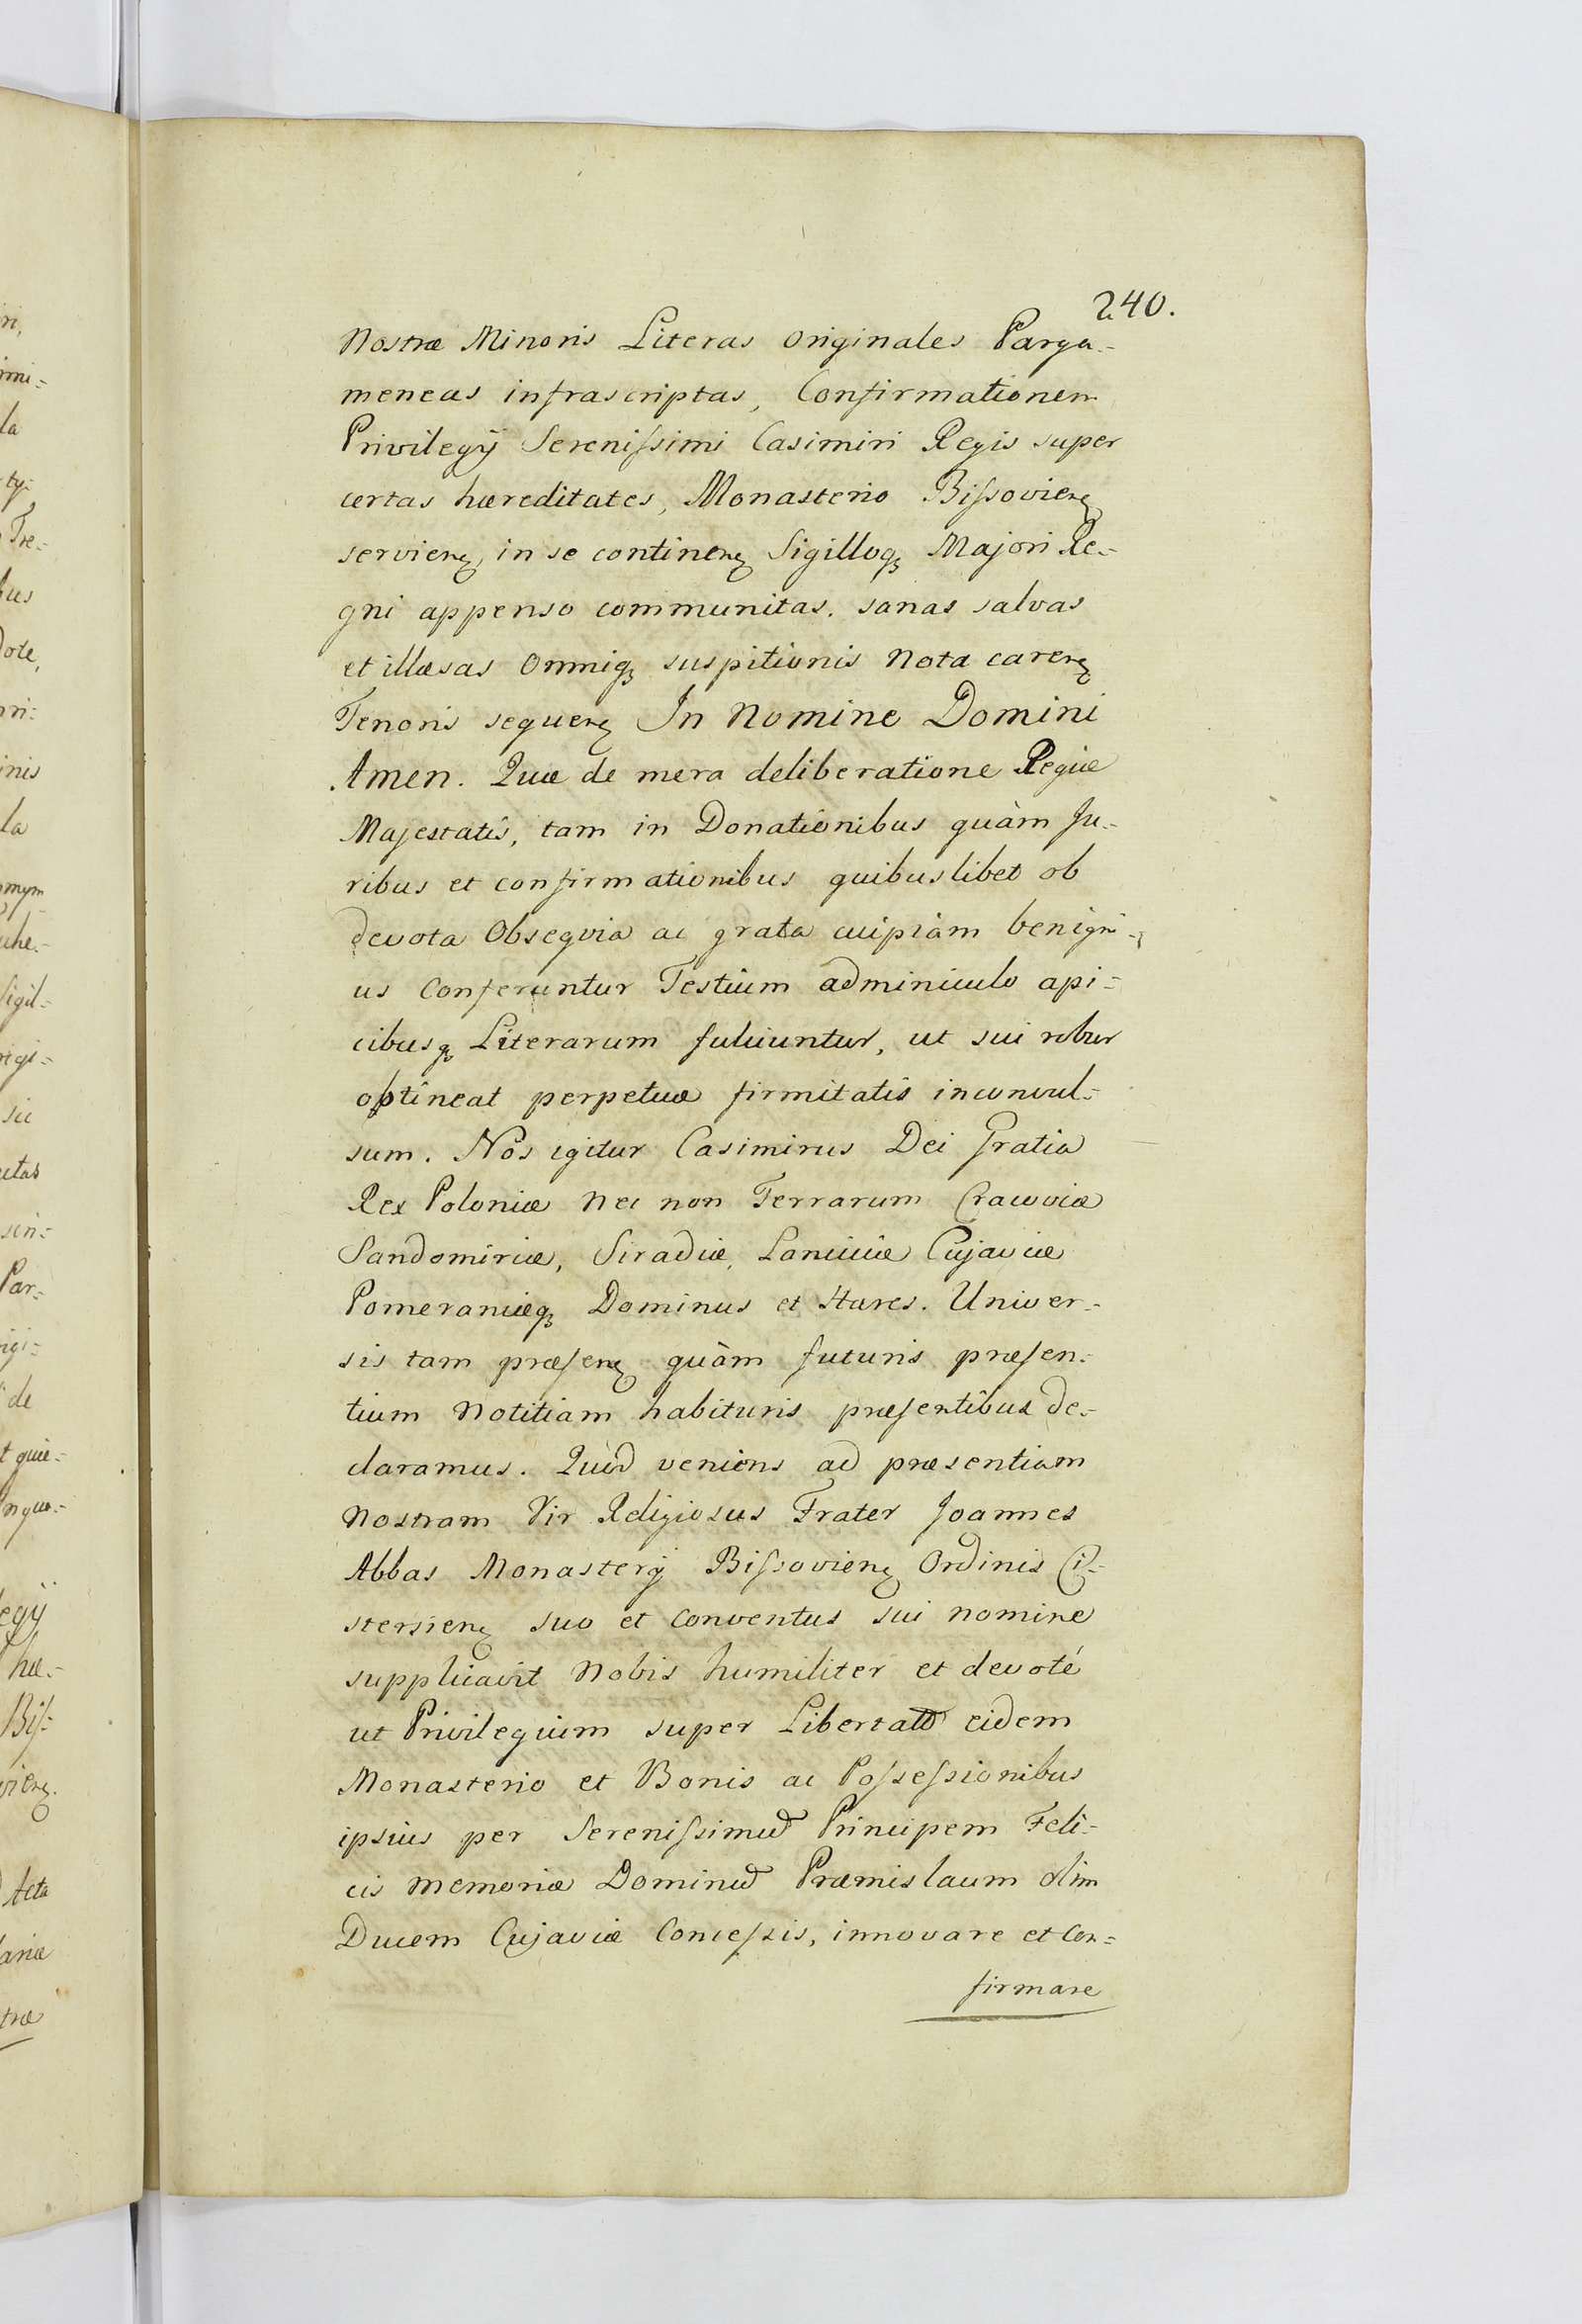 240.
Nostræ Minoris Literas Originales Parga-
meneas infrascriptas, Confirmationem
Privilegÿ Serenissimi Casimiri Regis super
certas hæreditates, Monasterio Bissovienȩ
servienȩ, in se continenȩ Sigilloqȝ Majori Re-
gni appenso communitas. sanas salvas
et illæsas Omniqȝ suspitionis Nota carenȩ
Tenoris sequenȩ In Nomine Domini
Amen. Quæ de mera deliberatione Regiæ
Majestatis, tam in Donationibus quàm Ju-
ribus et confirmationibus quibuslibet ob
devota Obsequia ac grata cuipiàm benigni-
us Conferuntur Testium adminiculo api-
cibusqȝ Literarum fulciuntur, ut sui robur
obtineat perpetuæ firmitatis inconvul-
sum. Nos igitur Casimirus Dei Gratia
Rex Poloniæ Nec non Terrarum Cracoviæ
Sandomiriæ, Siradiæ, Lanciciæ Cujaviæ
Pomeraniæqȝ Dominus et Hæres. Univer-
sis tam præsenȩ quàm futuris præsen-
tium Notitiam habituris præsentibus de-
claramus. Quòd veniens ad præsentiam
Nostram Vir Religiosus Frater Joannes
Abbas Monasterÿ Bissovienȩ Ordinis Ci-
stersienȩ suo et Conventus sui nomine
supplicavit Nobis humiliter et devoté
ut Privilegium super Libertate eidem
Monasterio et Bonis ac Possessionibus
ipsius per Serenissimum Principem Feli-
cis Memoriæ Dominum Præmislaum olim
Ducem Cujaviæ Concessis, innovare et Con-
firmare
ri,
la
Tre-
bus
dote,
inis
la
Sigil-
sic
Par-
de
t quie-
egÿ
hæ-
Bis-
vienȩ.
Acta
træ